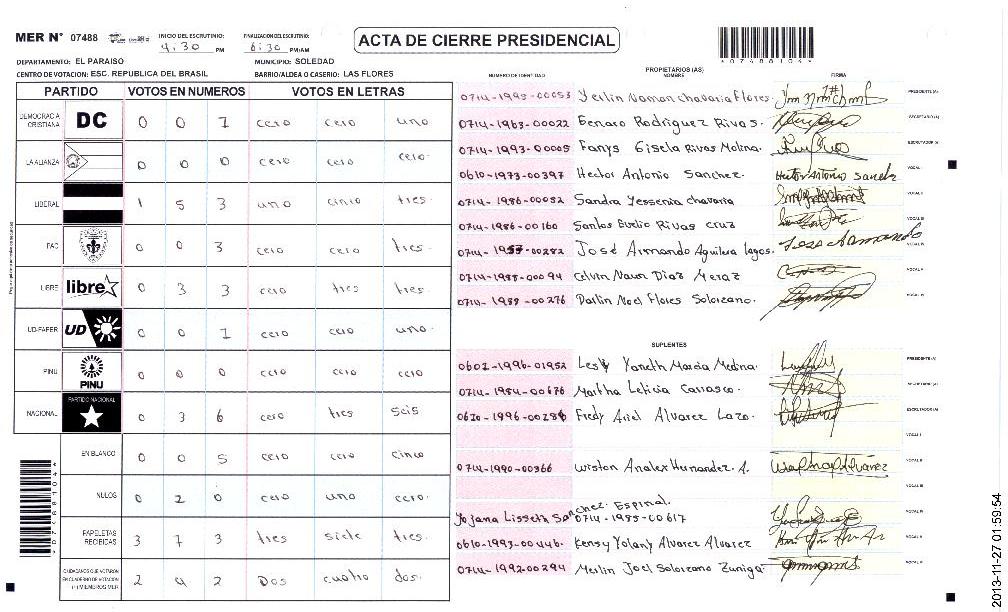 MER N° 07488
INICIO DEL ESCRUTINIO: 4:30 PM
FINALIZACION DEL ESCRUTINIO: 6:30 PM/AM
ACTA DE CIERRE PRESIDENCIAL
*07488104*
DEPARTAMENTO: EL PARAISO
MUNICIPIO: SOLEDAD
CENTRO DE VOTACION: ESC. REPUBLICA DEL BRASIL
BARRIO/ALDEA O CASERIO: LAS FLORES
PARTIDO VOTOS EN NUMEROS VOTOS EN LETRAS
DEMOCRACIA CRISTIANA DC 0 0 1 cero cero uno
LA ALIANZA 0 0 0 cero cero cero.
LIBERAL 1 5 3 uno cinco tres.
PAC 0 0 3 cero cero tres.
LIBRE libre 0 3 3 cero tres tres.
UD-FAPER UD 0 0 1 cero cero uno.
PINU PINU 0 0 0 cero cero cero
NACIONAL PARTIDO NACIONAL 0 3 6 cero tres seis
EN BLANCO 0 0 5 cero cero cinco
NULOS 0 2 0 cero uno cero.
PAPELETAS RECIBIDAS 3 7 3 tres siete tres.
CIUDADANOS QUE VOTARON EN CUADERNO DE VOTACION (+) MIEMBROS MER 2 4 2 Dos cuatro dos.
PROPIETARIOS (AS)
NUMERO DE IDENTIDAD NOMBRE FIRMA
0714-1995-00053 Yerlin Noman chavaria Flores. PRESIDENTE (A)
0714-1963-00022 Genaro Rodriguez Rivas. SECRETARIO (A)
0714-1993-00005 Fanys Gisela Rivas Molina. ESCRUTADOR (A)
0610-1973-00397 Hector Antonio Sanchez. Hector Antonio Sanche VOCAL I
0714-1986-00052 Sandra Yessenia chavaria VOCAL II
0714-1986-00160 Santos Eudio Rivas cruz VOCAL III
00282 José Armando Aguilera lagos. Jose Armando VOCAL IV
0714-1988-00094 Celvin Naun Diaz Meraz VOCAL V
0714-1989-00276 Darlin Noel Flores Solorzano. VOCAL VI
SUPLENTES
0602-1996-01952 Lesly Yaneth Marcia Medina. PRESIDENTE (A)
0714-1984-00676 Martha Leticia Carrasco. SECRETARIO (A)
0610-1996-00284 Fredy Ariel Alvarez Lazo. ESCRUTADOR (A)
VOCAL I
0714-1990-00366 Wiston Analex Hernandez A. VOCAL II
VOCAL III
Yojana Lisseth Sanchez Espinal.
0714-1985-00617
0610-1993-00446. Kensy Yolany Alvarez Alvarez VOCAL V
0714-1992-00294 Merlin Joel Solorzano Zuniga
2013-11-27 01:59:54